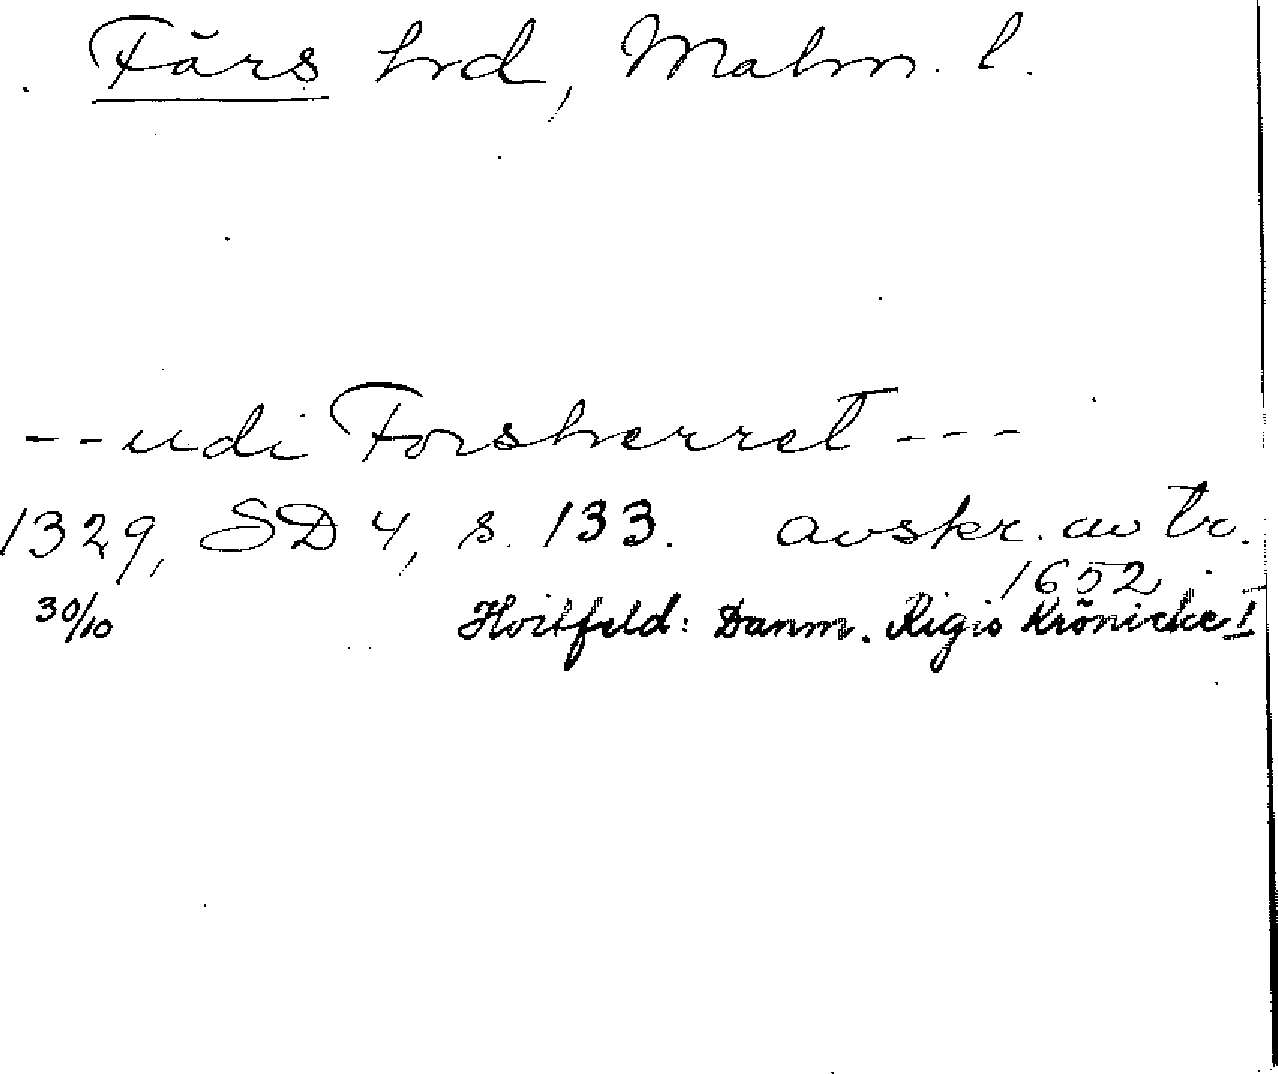 Färs hrd, Malm. l.
--udi Forsherret---
1329, SD 4, s. 133. avskr. av tr.
1652
30/10 Hvitfeld: Danm. Rigis Krönicke I